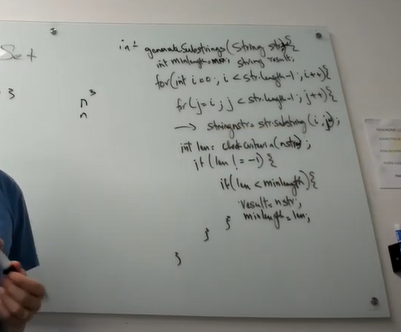 & +
3
n^3
n
int generateSubstrings(String str){
int minlength=max; string result;
for(int i=0; i<str.length-1; i++){
for(j=i; j<str.length-1; j++){
→ string nstr=str.substring(i,j);
int len= checkCriteria(nstr);
if(len != -1){
if(len<minlength){
result=nstr;
minlength=len;
}
}
}